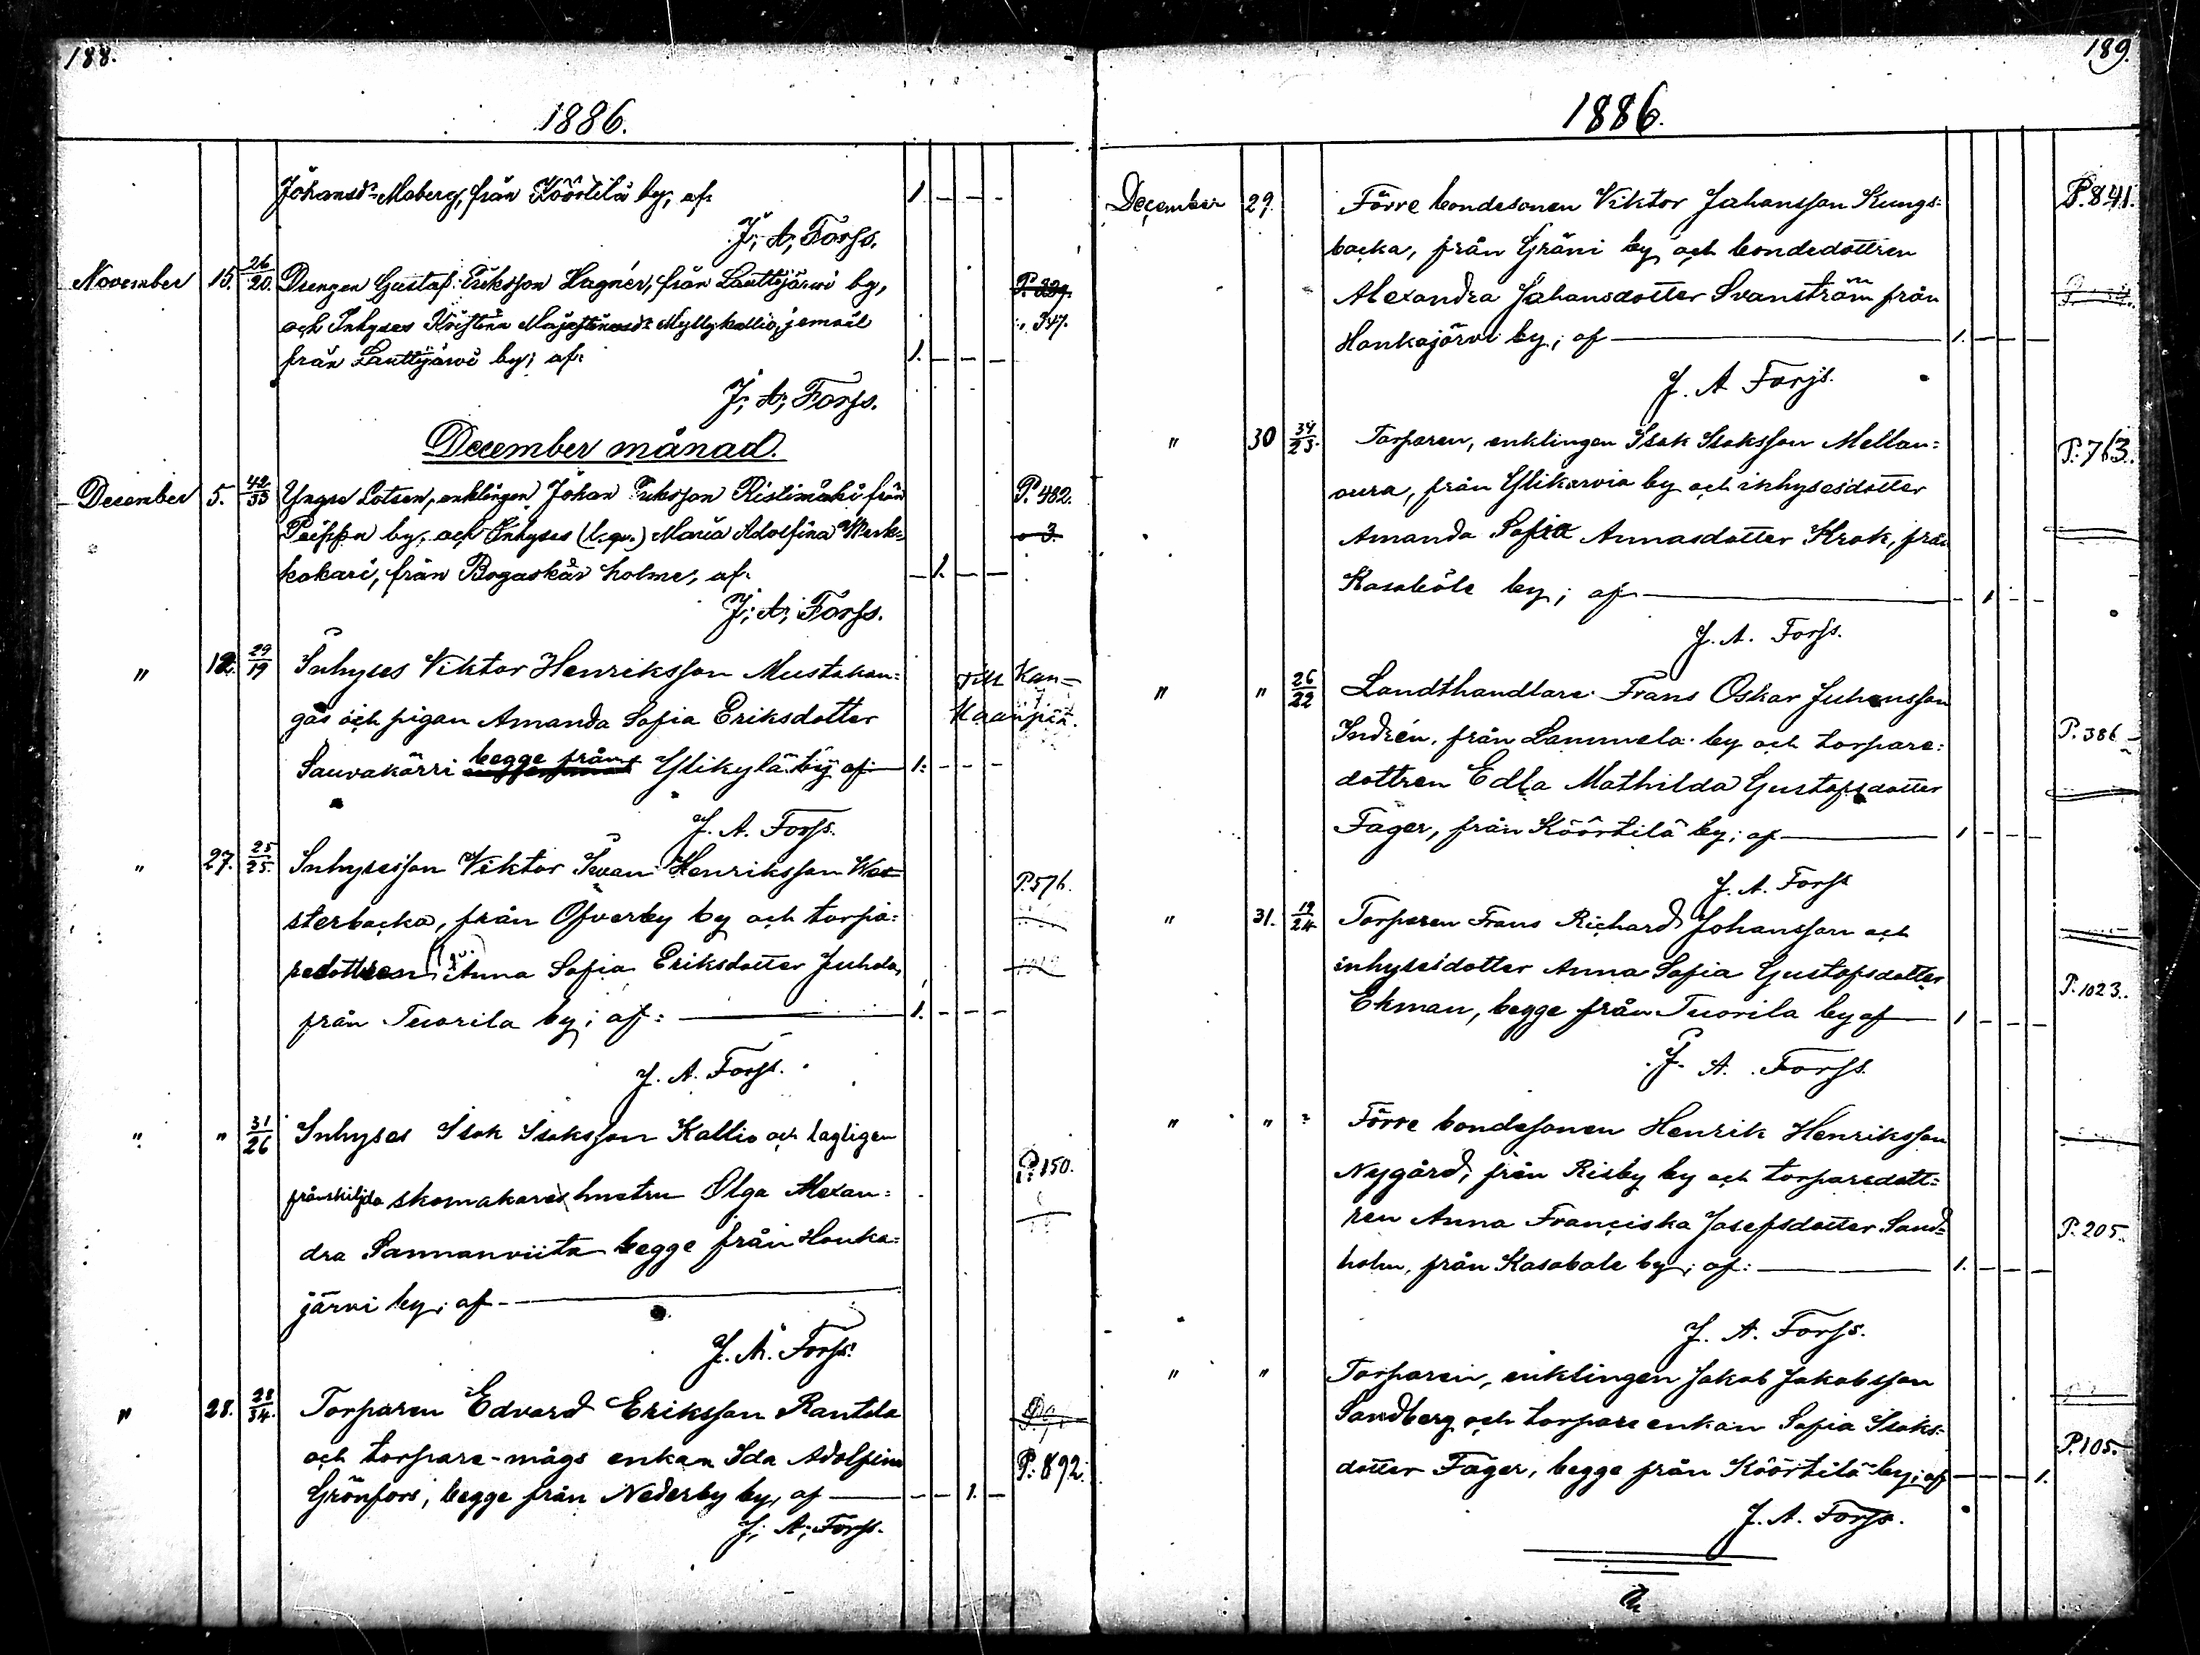 188.
1886.
Johansdr Moberg, från Köörtilä by, af 1. – – –
J. A. Forss.
November 15. 26/20. Drengen Gustaf Eriksson Hagnér, från Lauttijärwi by,
och Inhyses Kristina Myllykallio, jemväl P. 347.
från Lauttijärwi by; af: 1. – – –
J. A. Forss.
December månad.
December 5. 42/33 Yngre Lotsen, enklingen Johan Eriksson Ristimäki från P. 482.
by, och Inhyses (l. qv.) Maria Adolfina Werk= 3.
kokari, från Bogaskär holme, af – 1. – –
J. A. Forss.
" 12. 29/19 Inhyses Viktor Henriksson Mustakan= Till Kan=
gas och pigan Amanda Sofia Eriksdotter kaanpää.
Sauvakärri begge från Ylikylä by af 1. – – –
J. A. Forss.
" 27. 25/25. Inhysesson Viktor Iwan Henriksson Wes= P. 576.
sterbacka, från Ofverby by och torpa=
redottren (l. qv.) Anna Sofia Eriksdotter Juhola,
från Tuorila by; af: 1. – – –
J. A. Forss.
" " 31/26 Inhyses Isak Isaksson Kallio och lagligen
frånskiljda skomakares hustru Olga Alexan= P. 150.
dra Sannanviita begge från Honka=
järvi by; af –
J. A. Forss.
" 28. 28/34. Torparen Edvard Eriksson Rantala
och torpare-mågs enkan Ida Adolfina P. 892.
Grönfors, begge från Nederby by, af – – 1. –
J. A. Forss.
189.
1886.
December 29. Förre bondesonen Viktor Johansson Kungs= P. 841.
backa, från Gräni by och bondedottren
Alexandra Johansdotter Svanström från
Honkajärvi by; af 1. – – –
J. A Forss.
" 30 34/23. Torparen, enklingen Isak Isaksson Mellan= P. 763.
oura, från Ylikarvia by och inhysesdotter
Amanda Sofia Annasdotter Krok, från
Kasaböle by; af – 1 – –
J. A. Forss.
" " 26/22 Landthandlare Frans Oskar Juhansson
Indrén, från Lammela by och torpare= P. 386
dottren Edla Mathilda Gustafsdotter
Fager, från Köörtilä by; af 1 – – –
J. A. Forss
" 31. 19/24 Torparen Frans Richard Johansson och
inhysesdotter Anna Sofia Gustafsdotter P. 1023.
Ekman, begge från Tuorila by af 1 – – –
J. A. Forss.
" " Förre bondesonen Henrik Henriksson
Nygård, från Risby by och torparedott=
ren Anna Franciska Josefsdotter Sand= P. 205.
holm, från Kasabole by; af: 1. – – –
J. A. Forss.
" " Torparen, enklingen Jakob Jakobsson
Sandberg och torpare enkan Sofia Isaks= P. 105.
dotter Fager, begge från Köörtilä by; af – – – 1.
J. A. Forss.